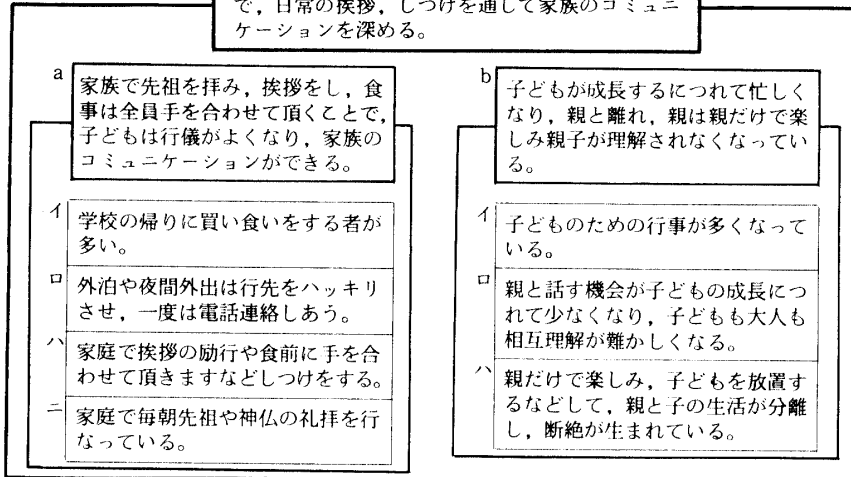 で，日常の挨拶，しつけを通して家族のコミュニ
ケーションを深める。
a
家族で先祖を拝み，挨拶をし，食
事は全員手を合わせて頂くことで，
子どもは行儀がよくなり，家族の
コミュニケーションができる。
イ
学校の帰りに買い食いをする者が
多い。
ロ
外泊や夜間外出は行先をハッキリ
させ，一度は電話連絡しあう。
ハ
家庭で挨拶の励行や食前に手を合
わせて頂きますなどしつけをする。
ニ
家庭で毎朝先祖や神仏の礼拝を行
なっている。
b
子どもが成長するにつれて忙しく
なり，親と離れ，親は親だけで楽
しみ親子が理解されなくなってい
る。
イ
子どものための行事が多くなって
いる。
ロ
親と話す機会が子どもの成長につ
れて少なくなり，子どもも大人も
相互理解が難かしくなる。
ハ
親だけで楽しみ，子どもを放置す
るなどして，親と子の生活が分離
し，断絶が生まれている。